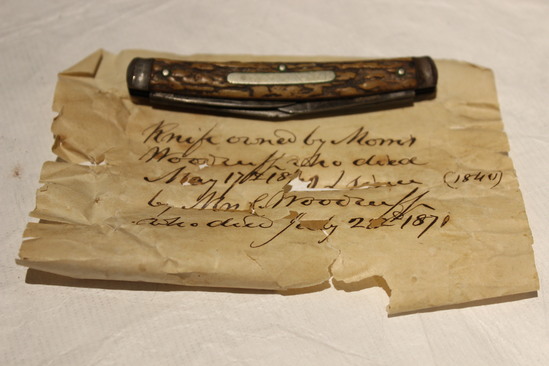 Knife owned by Morris
Woodruff who died
May 17th 18 since (1840)
by Mrs C Woodruff
who died July 22d 1871